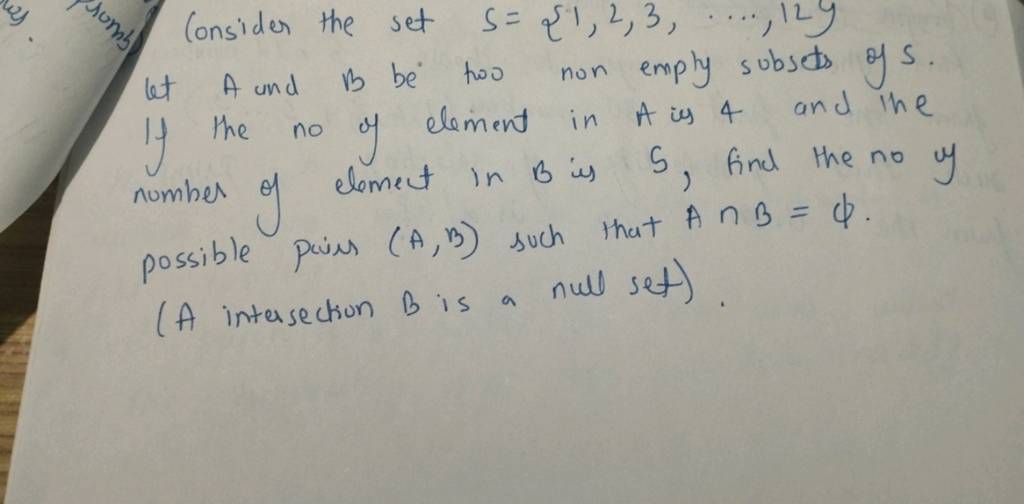 Consider the set S = {1, 2, 3, ...., 12}
let A and B be two non empty subsets of S.
If the no of element in A is 4 and the
number of element in B is 5, find the no of
possible pairs (A, B) such that A ∩ B = ϕ.
(A intersection B is a null set).